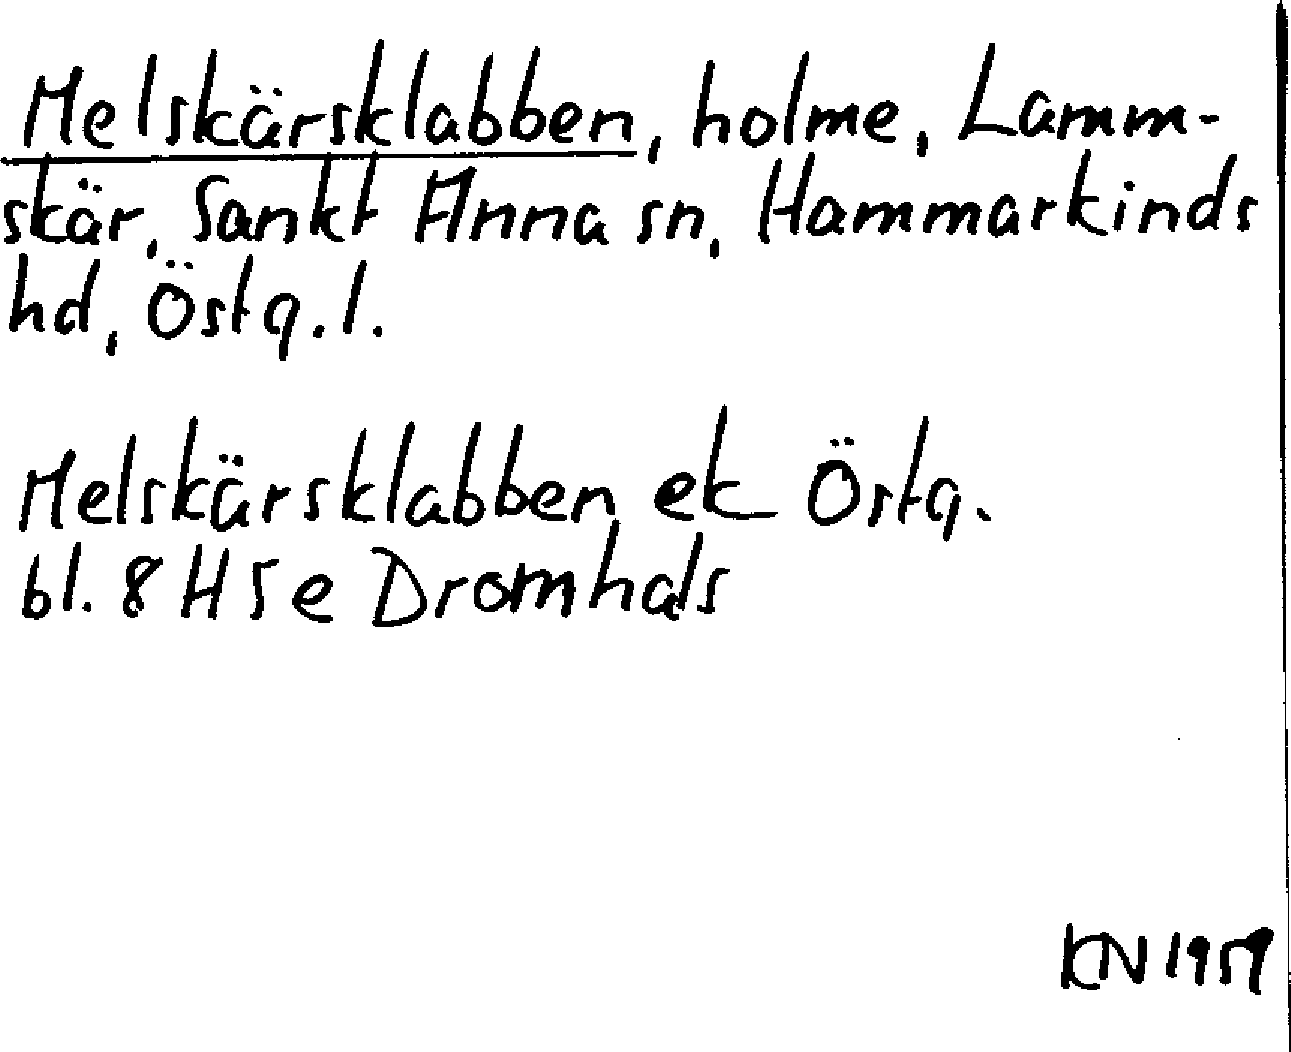 Melskärsklabben, holme, Lamm-
skär, Sankt Anna sn, Hammarkinds
hd, Östg. l.
Melskärsklabben ek Östg.
bl. 8 H 5 e Dromhals
KN 1959